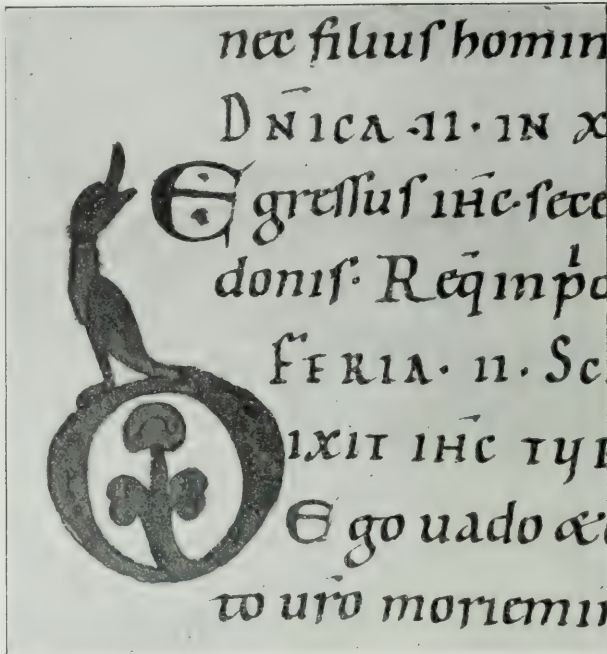 nec filius homin
DN̄ICA ·II· IN X
Egressus ih̄c· sece
donis· Req̄ in p̍o
FERIA · II · Sc
DIXIT IH̄C TUR
Ego uado &
to ur̄o moriemin